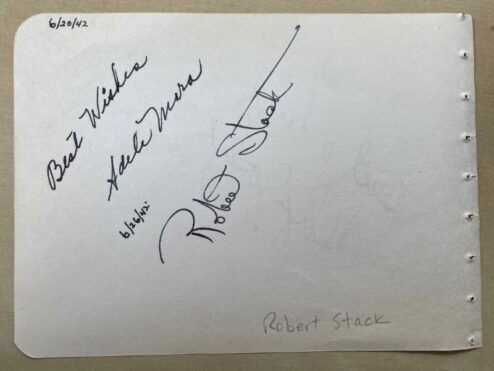 6/20/42
Best Wishes
Adele Mara
6/26/42
Robert Stack
Robert Stack